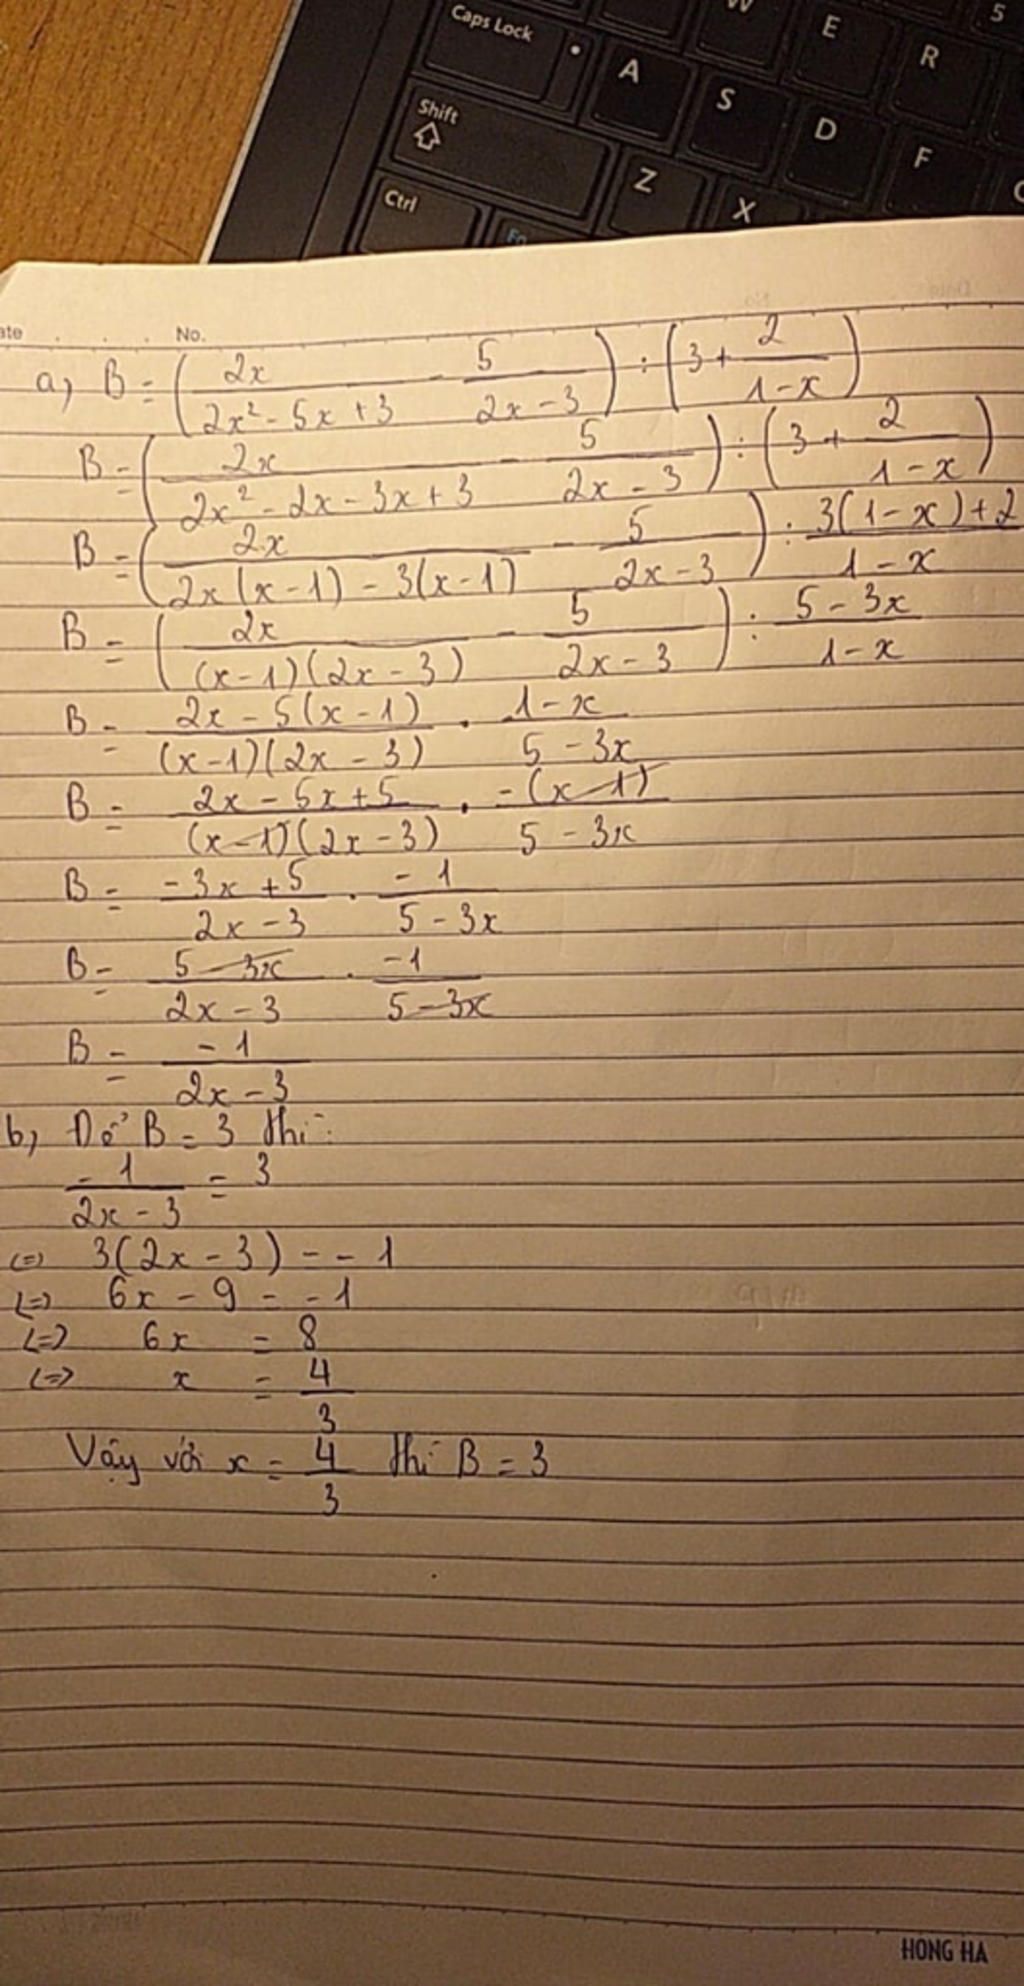 W E R 5
Caps Lock A S D F
Shift Z X
Ctrl Fn
ate No.
a, B = (2x / (2x² - 5x + 3) - 5 / (2x - 3)) : (3 + 2 / (1 - x))
B = (2x / (2x² - 2x - 3x + 3) - 5 / (2x - 3)) : (3 + 2 / (1 - x))
B = (2x / (2x(x - 1) - 3(x - 1)) - 5 / (2x - 3)) : (3(1 - x) + 2) / (1 - x)
B = (2x / ((x - 1)(2x - 3)) - 5 / (2x - 3)) : (5 - 3x) / (1 - x)
B = (2x - 5(x - 1)) / ((x - 1)(2x - 3)) . (1 - x) / (5 - 3x)
B = (2x - 5x + 5) / ((x - 1)(2x - 3)) . -(x - 1) / (5 - 3x)
B = (-3x + 5) / (2x - 3) . -1 / (5 - 3x)
B = (5 - 3x) / (2x - 3) . -1 / (5 - 3x)
B = -1 / (2x - 3)
b, Để B = 3 thì:
-1 / (2x - 3) = 3
<=> 3(2x - 3) = -1
<=> 6x - 9 = -1
<=> 6x = 8
<=> x = 4 / 3
Vậy với x = 4 / 3 thì B = 3
HONG HA